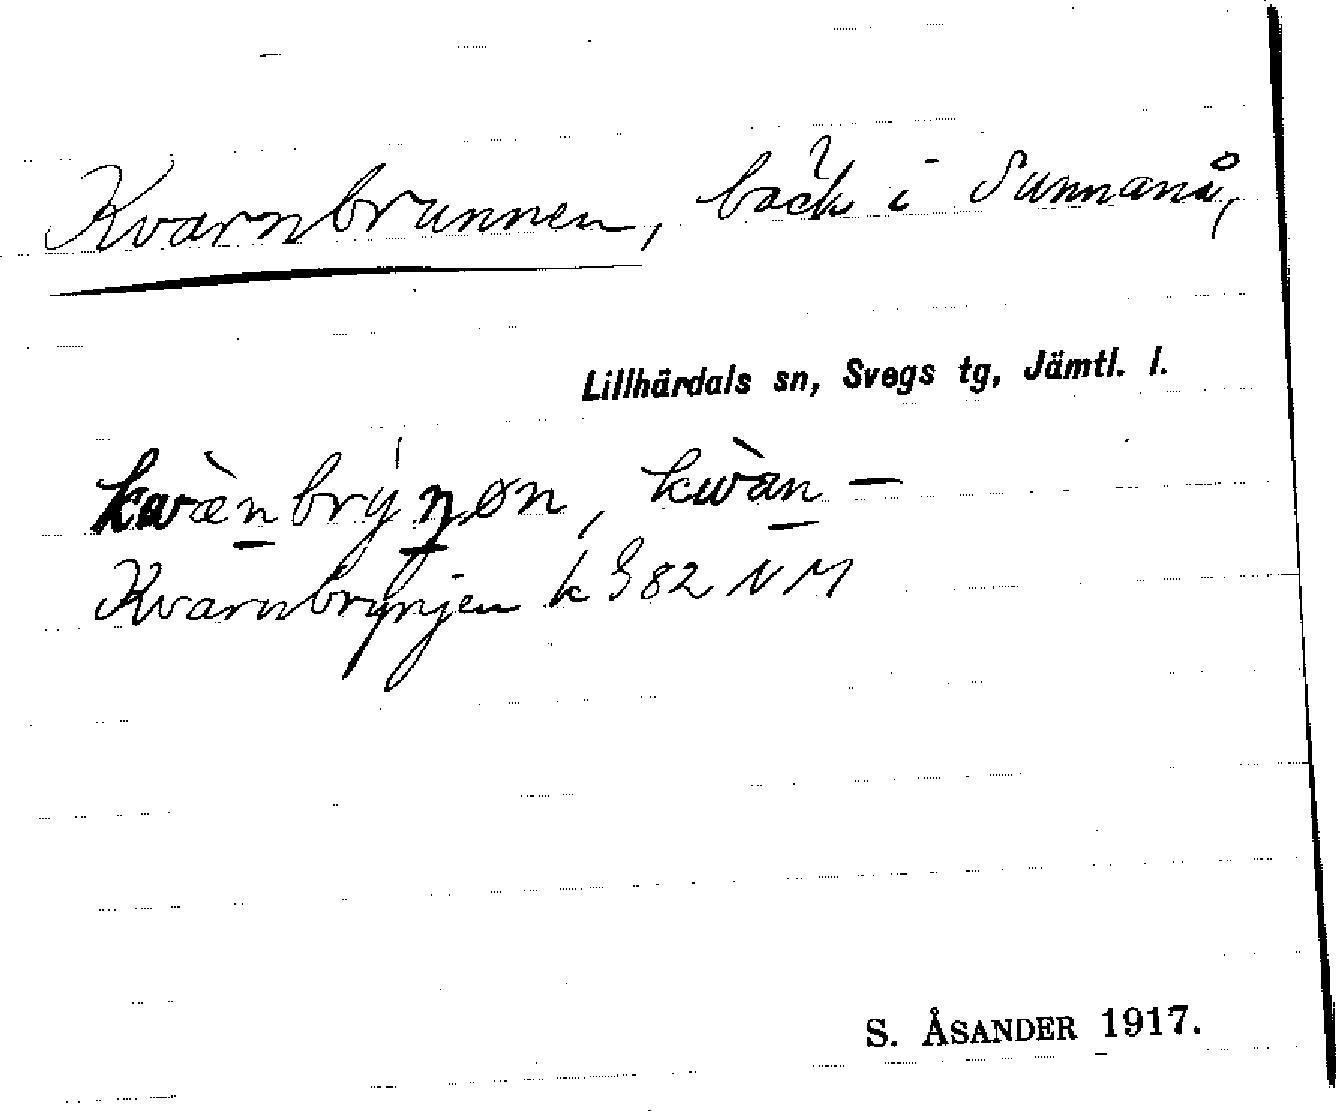 Kvarnbrunnen, bäck i Sunnanå,
Lillhärdals sn, Svegs tg, Jämtl. l.
kwæ̀nbrýŋøn, kwàn –
Kvarnbrynjen k 982 NM
S. ÅSANDER 1917.